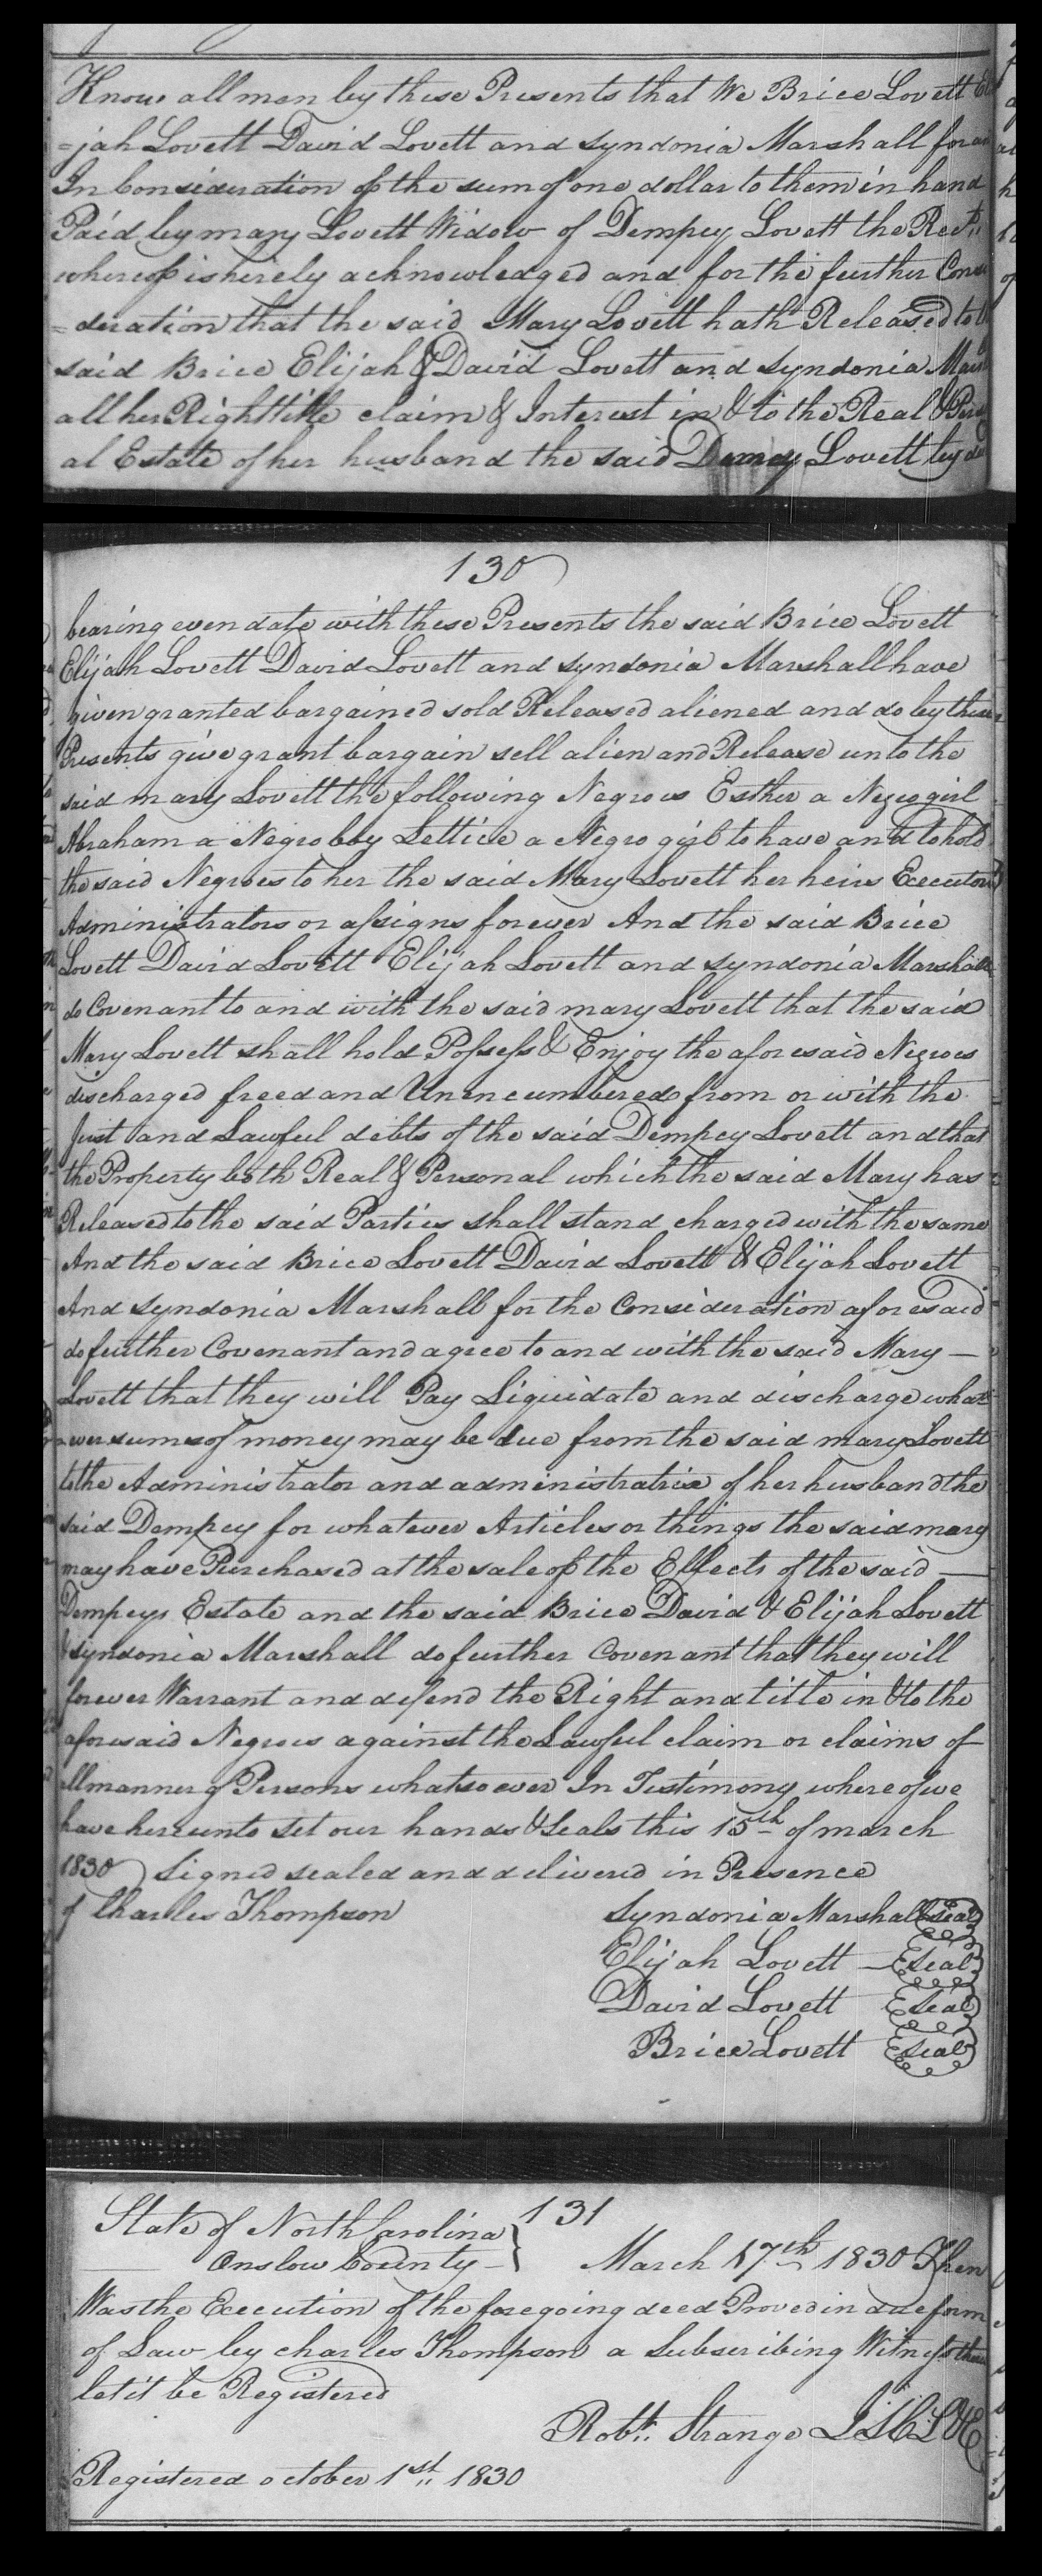 Know all men by these Presents that We Brice Lovett Eli
=jah Lovett David Lovett and Syndonia Marshall for and
In Consideration of the sum of one dollar to them in hand
Paid by mary Lovett Widow of Dempcy Lovett the Rect.
whereof is hereby acknowledged and for the further Consi
=deration that the said Mary Lovett hath Released to
said Brice Elijah & David Lovett and Syndonia Mars
all her Right title claim & Interest in & to the Real & Person
al Estate of her husband the said Demcy Lovett by
130
bearing even date with these Presents the said Brice Lovett
Elijah Lovett David Lovett and Syndonia Marshall have
given granted bargained sold Released aliened and do by these
Presents give grant bargain sell alien and Release unto the
said mary Lovett the following Negroes Esther a Negro girl
Abraham a Negro boy Lettice a Negro girl to have and to hold
the said Negroes to her the said Mary Lovett her heirs Executors
Administrators or assigns forever And the said Brice
Lovett David Lovett Elijah Lovett and Syndonia Marshall
do Covenant to and with the said mary Lovett that the said
Mary Lovett shall hold Possess & Enjoy the aforesaid Negroes
discharged freed and Unincumbered from or with the
Just and Lawful debts of the said Dempcy Lovett and that
the Property both Real & Personal which the said Mary has
Released to the said Parties shall stand charged with the same
And the said Brice Lovett David Lovett & Elijah Lovett
And Syndonia Marshall for the Consideration aforesaid
do further Covenant and agree to and with the said Mary —
Lovett that they will Pay Liquidate and discharge what
ever sums of money may be due from the said mary Lovett
to the Administrator and administratrix of her husband the
said Dempcy for whatever Articles or things the said mary
may have Purchased at the sale of the Effects of the said —
Dempcys Estate and the said Brice David & Elijah Lovett
& Syndonia Marshall do further Covenant that they will
forever Warrant and defend the Right and title in & to the
aforesaid Negroes against the Lawful claim or claims of
all manner of Persons whatsoever In Testimony whereof we
have hereunto set our hands & seals this 15th of march
1830 Signed sealed and delivered in Presence
of Charles Thompson Syndonia Marshall Seal
Elijah Lovett — Seal
David Lovett Seal
Brice Lovett Seal
131
State of North Carolina
Onslow County } March 17th 1830 Then
Was the Execution of the foregoing deed Proved in due form
of Law by Charles Thompson a Subscribing Witness
let it be Registered
Robt. Strange J.S.C.L.&E
Registered October 1st 1830